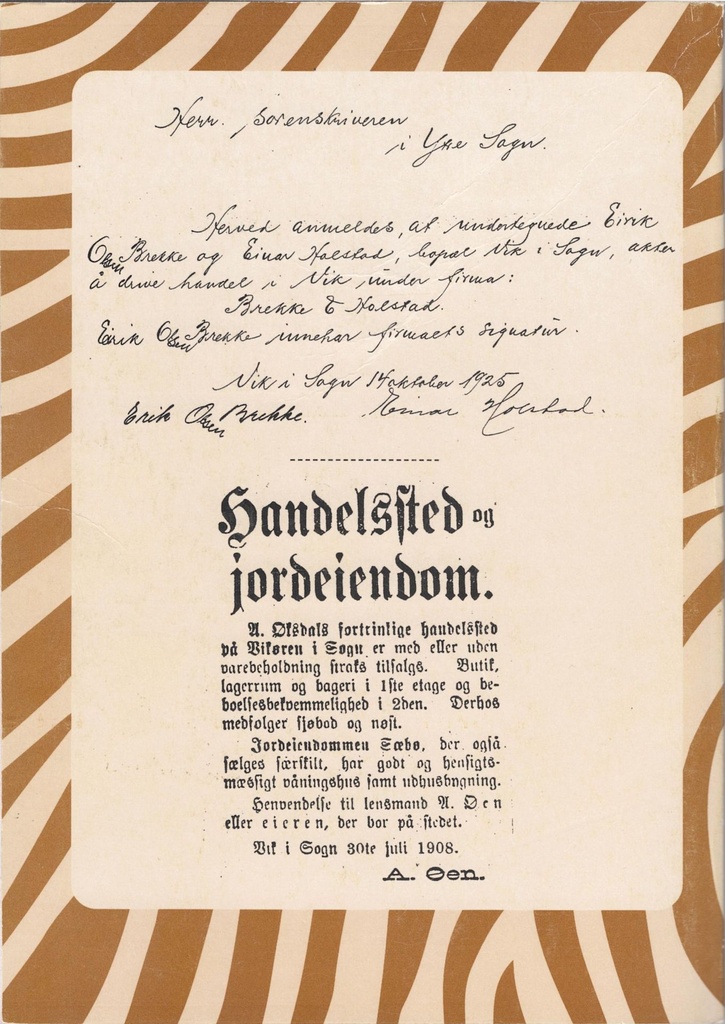 Herr. Sorenskriveren
i Ytre Sogn.
Herved anmeldes, at undertegnede Eirik
Olsen Brekke og Einar Holstad, bopæl Vik i Sogn, akter
å drive handel i Vik under firma:
Brekke & Holstad.
Eirik Olsen Brekke innehar firmaets signatur.
Vik i Sogn 14 oktober 1925
Erik Olsen Brekke. Einar Holstad.
Handelssted og
jordeiendom.
A. Øksdals fortrinlige handelssted
på Vikøren i Sogn er med eller uden
varebeholdning straks tilsalgs. Butik,
lagerrum og bageri i 1ste etage og be-
boelsesbekvemmelighed i 2den. Derhos
medfølger sjøbod og nøst.
Jordeiendommen Sæbø, der også
sælges særskilt, har godt og hensigts-
mæssigt våningshus samt udhusbygning.
Henvendelse til lensmand A. Øen
eller eieren, der bor på stedet.
Vik i Sogn 30te juli 1908.
A. Øen.